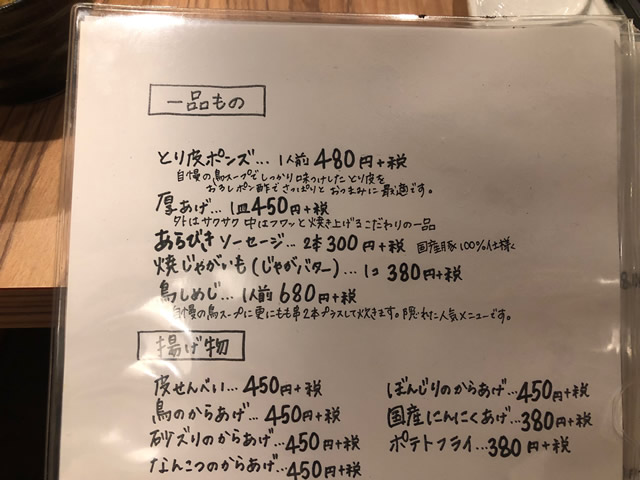 一品もの
とり皮ポンズ… 1人前 480円+税
自慢の鳥スープでしっかり味つけしたとり皮を
おろしポン酢でさっぱりと おつまみに最適です。
厚あげ… 1皿 450円+税
外はサクサク 中はフワッと焼き上げるこだわりの一品
あらびきソーセージ… 2本 300円+税 国産豚100%仕様
焼じゃがいも(じゃがバター)… 1コ 380円+税
鳥しめじ… 1人前 680円+税
自慢の鳥スープに更にもも串2本プラスして炊きます。隠れた人気メニューです。
揚げ物
皮せんべい… 450円+税
鳥のからあげ… 450円+税
砂ズリのからあげ… 450円+税
なんこつのからあげ… 450円+税
ぼんじりのからあげ… 450円+税
国産にんにくあげ… 380円+税
ポテトフライ… 380円+税